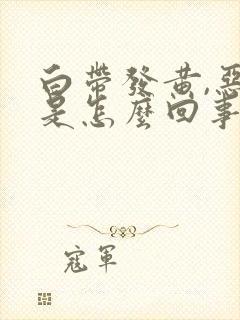 白帶發黃,惡
是怎麼回事
寇軍